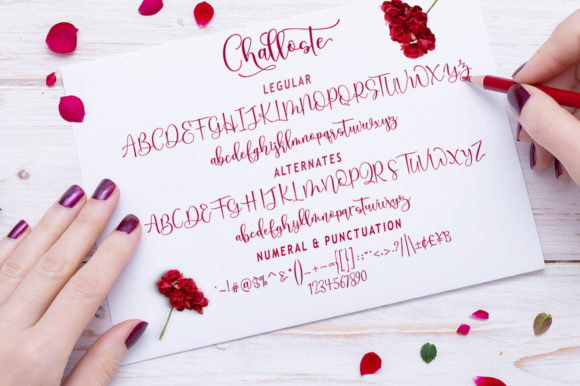 Challoste
LEGULAR
ABCDEFGHIJKLMNOPQRSTUVWXYZ
abcdefghijklmnopqrstuvwxyz
ALTERNATES
ABCDEFGHIJKLMNOPQRSTUVWXYZ
abcdefghijklmnopqrstuvwxyz
NUMERAL & PUNCTUATION
1234567890